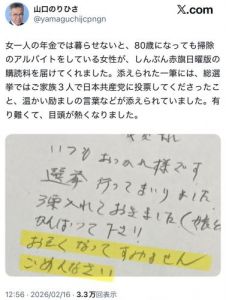 山口のりひさ
@yamaguchijcpngn
X.com
女一人の年金では暮らせないと、80歳になっても掃除
のアルバイトをしている女性が、しんぶん赤旗日曜版の
購読料を届けてくれました。添えられた一筆には、総選
挙ではご家族3人で日本共産党に投票してくださったこ
と、温かい励ましの言葉などが添えられていました。有
り難くて、目頭が熱くなりました。
いつもおつかれ様です
選挙 行ってまいりました
3票入れておきました(娘と
がんばって下さい
おそくなってすみません
ごめんなさい
12:56 · 2026/02/16 · 3.3万回表示